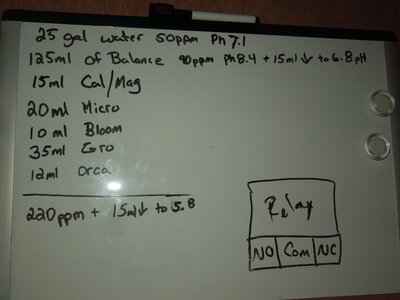 25 gal water 50ppm Ph 7.1
125ml of Balance 90ppm Ph 8.4 + 15ml ↓ to 6.8 pH
15ml Cal/Mag
20ml Micro
10ml Bloom
35ml Gro
12ml Orca
220ppm + 15ml ↓ to 5.8
Relay
NO Com NC